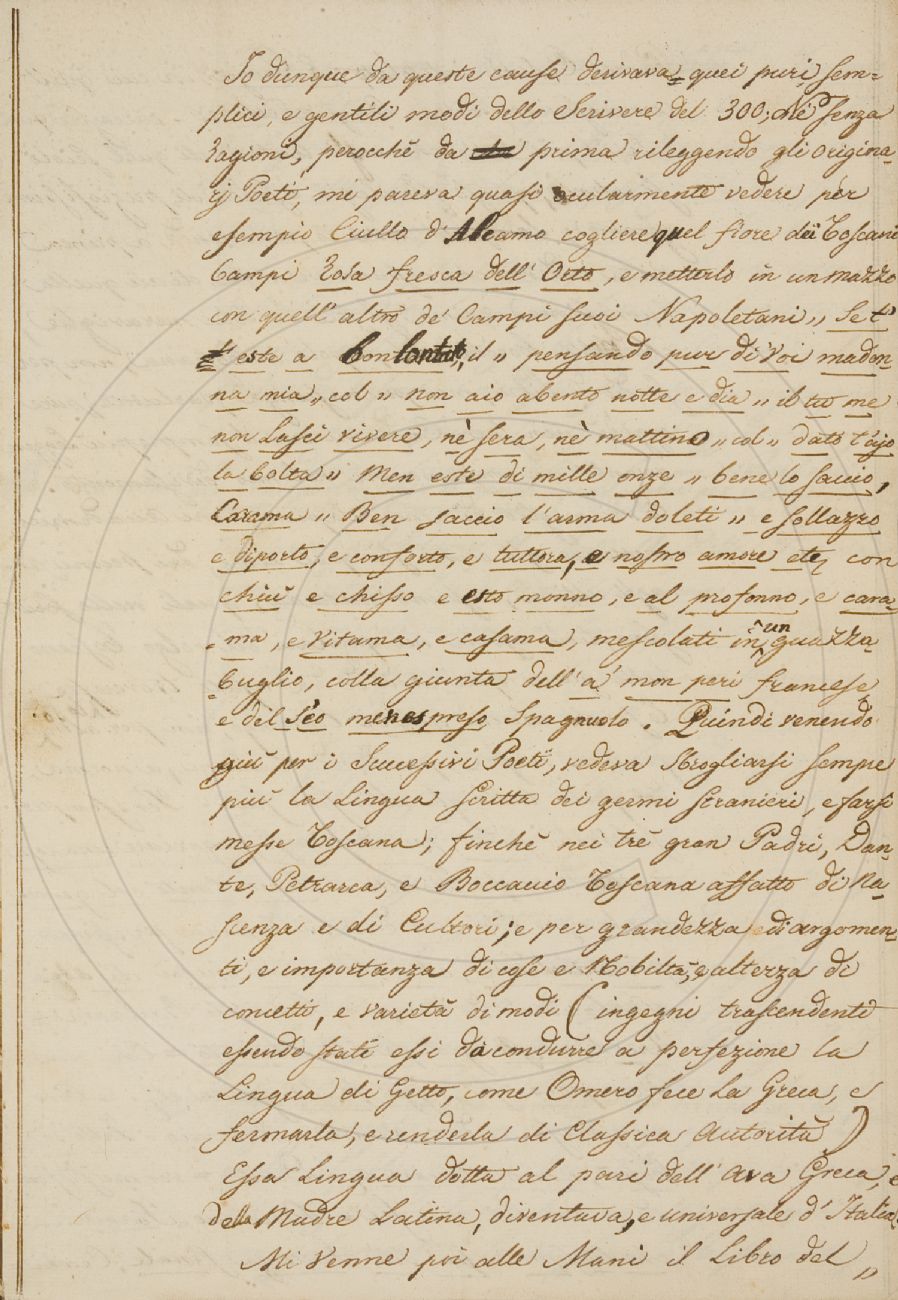 Io dunque da queste cause derivava quei puri, sem=
plici, e gentili modi dello Scrivere del 300; Nè senza
ragioni, perocchè da prima rileggendo gli origina=
rj Poeti, mi pareva quasi ocularmente vedere per
esempio Ciullo d'Alcamo cogliere quel fiore dei Toscani
Campi Rosa fresca dell'Orto, e metterlo in un mazzo
con quell'altro de' Campi suoi Napoletani „ Se t'
este a bontate, il „ pensando pur di Voi madon=
na mia „ col „ non aio abento notte e dia „ il tu me
non Lasci vivere, nè sera, nè mattino „ col „ dato t'ajo
la bolta „ Men este di mille onze „ bene lo saccio,
Carama „ Ben saccio l'arma doleti „ e sollazzo
e diporto, e conforto, e tuttora, e nostro amore etc, con
chiù e chisso e esto monno, e al profonno, e cara=
=ma, e Vitama, e casama, mescolati in un guazza
=buglio, colla giunta dell'a mon peri francese
e del Sèo menespreso Spagnuolo. Quindi venendo
giù per i Successivi Poeti, vedeva Sbrogliarsi sempre
più la Lingua scritta dei germi stranieri, e farsi
messe Toscana; finchè nei trè gran Padri, Dan=
te, Petrarca, e Boccaccio Toscana affatto di Na=
scenza e di Cultori; e per grandezza di argomen=
ti, e importanza di cose e Nobiltà, e altezza di
concetti, e varietà di modi (ingegni trascendenti
essendo stati essi da condurre a perfezione la
Lingua di Getto, come Omero fece La Greca, e
fermarla, e renderla di Classica Autorità)
Essa Lingua dotta al pari dell'Ava Greca, e
della Madre Latina, diventava, e universale d'Italia.
Mi Venne poi alle Mani il Libro del „